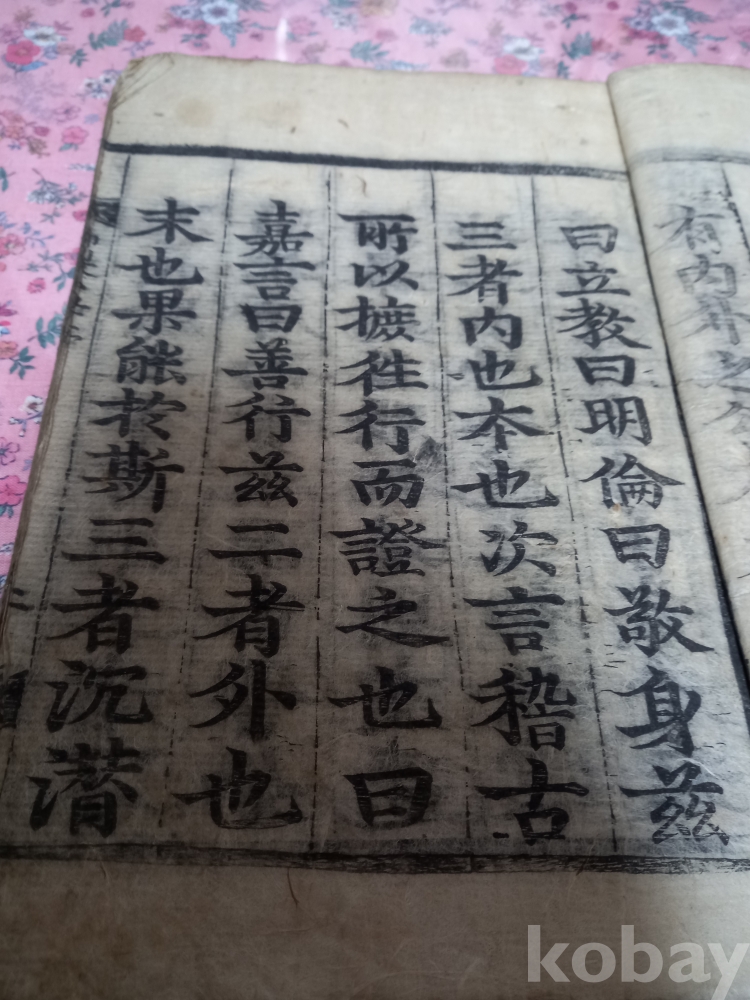 有內外之分
曰立教曰明倫曰敬身茲
三者內也本也次言稽古
所以摭徃行而證之也曰
嘉言曰善行茲二者外也
末也果能於斯三者沉潛
kobay